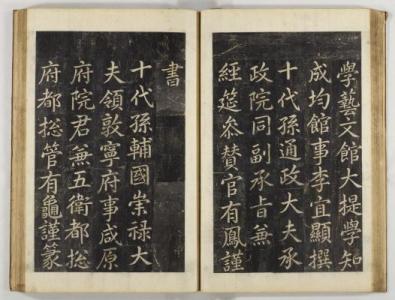 學藝文館大提學知
成均館事李宜顯撰
十代孫通政大夫承
政院同副承旨兼
經筵叅贊官有鳳謹
書
十代孫輔國崇祿大
夫領敦寧府事咸原
府院君兼五衛都捴
府都捴管有龜謹篆